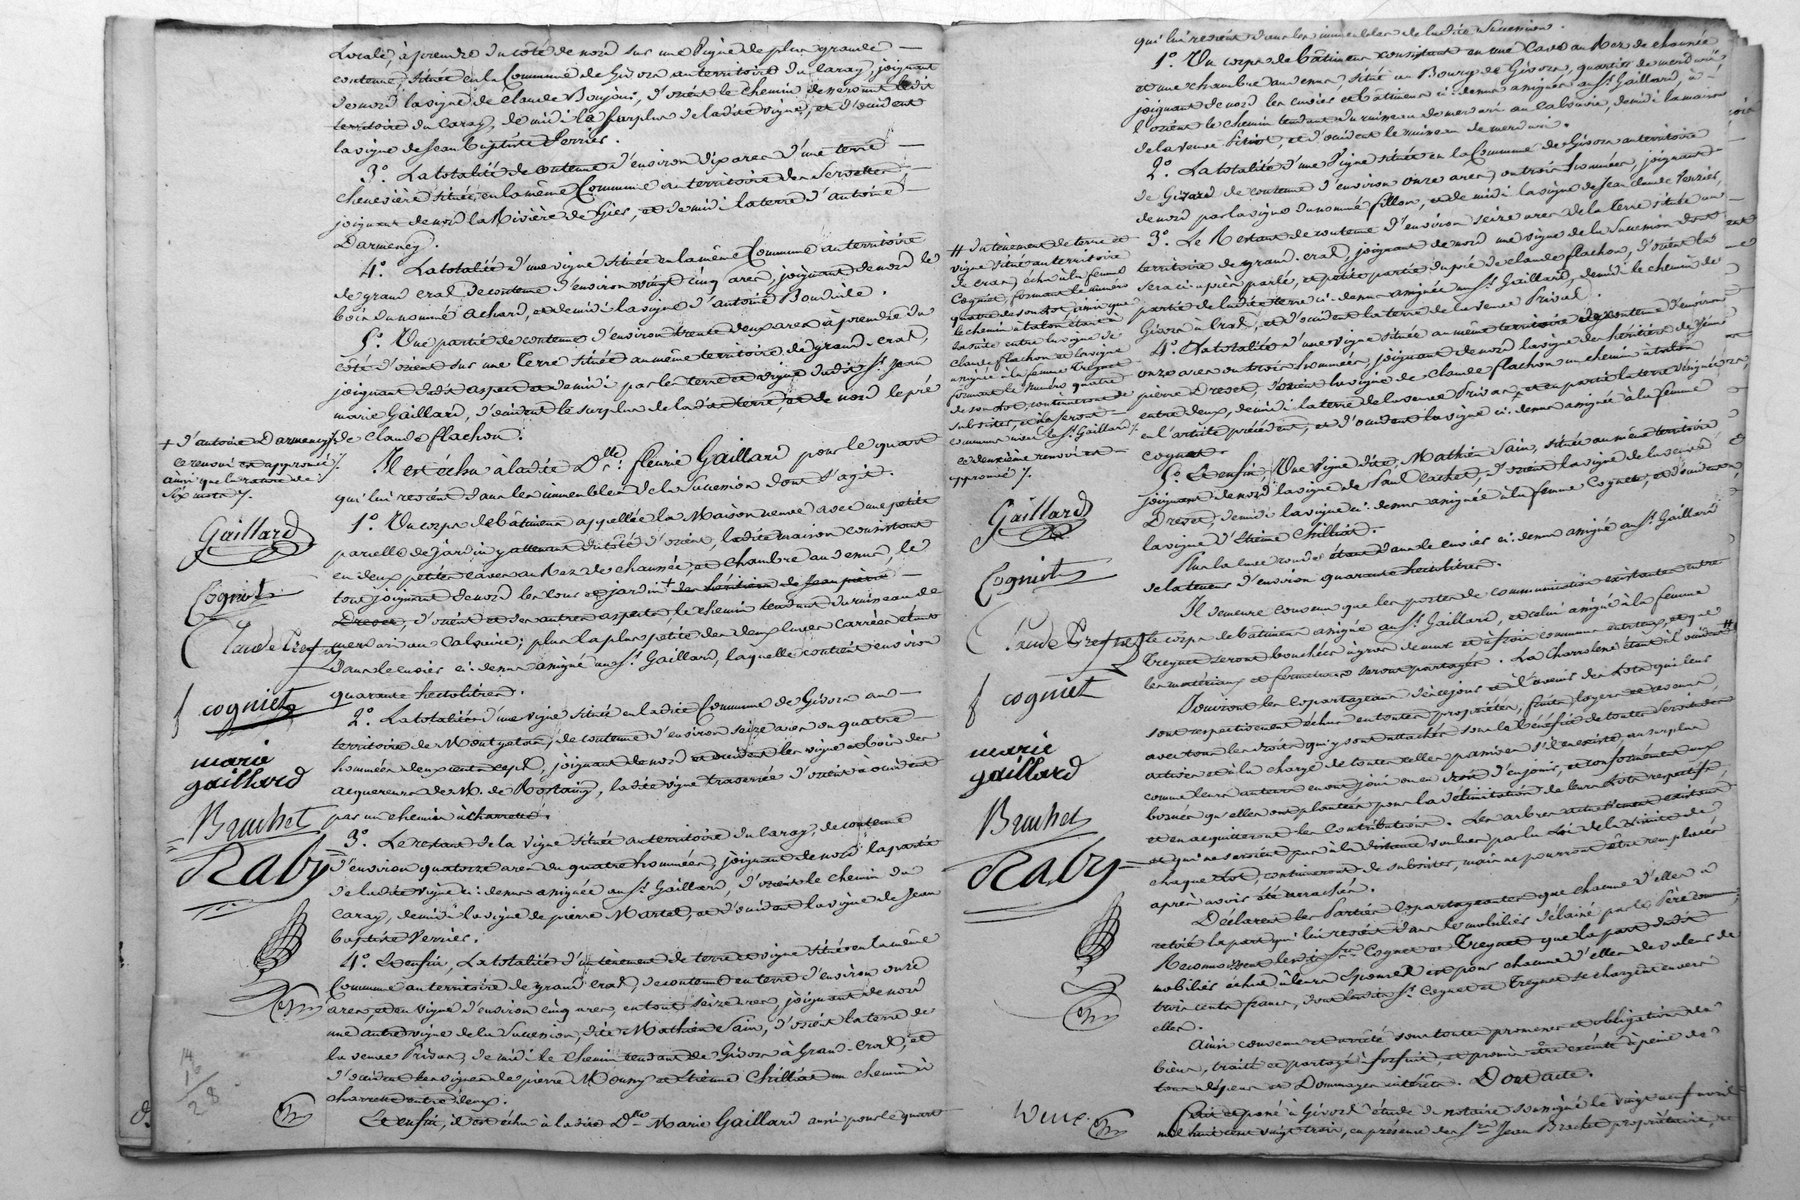 Locale, à prendre du côté de nord sur une vigne de plus grande
contenue, située en la Commune de Givors au territoire du Caray, joignant
de nord la vigne de Claude Boujoin, d'orient le chemin desservant ledit
territoire du Caray, de midi le surplus de ladite vigne, et d'occident
la vigne de Jean Baptiste Verrier.
3º. La totalité de contenue d'environ dix ares d'une terre
chenevière située en la même Commune au territoire des Servettes,
joignant de nord la Rivière de Gier, et de midi la terre d'antoine
Darmency.
4º. La totalité d'une vigne située en la même Commune au territoire
de grand cral, de contenue d'environ vingt cinq ares, joignant de nord le
bois du nommé achard, et de midi la vigne d'antoine
5º. Une partie de contenue d'environ trente deux ares à prendre du
côté d'orient sur une Terre située au même territoire de grand-cral,
joignant dudit aspect et de midi par les terre et vigne dudit Sr. Jean
marie Gaillard, d'occident le surplus de ladite terre, et de nord le pré
de Claude flachon.
Il est échu à ladite Dlle. fleurie Gaillard pour le quart
qui lui revient dans les immeubles de la Succession dont s'agit.
1º. Un corps de bâtiment appellée la Maison neuve avec une petite
parcelle de jardin y attenant du côté d'orient, ladite maison consistant
en deux petites caves au Rez de chaussée, et chambre au dessus, le
tout joignant de nord les cour et jardin + des héritiers de Jean pierre
Drevet, d'orient et des autres aspects, le chemin tendant du ruisseau de
merdari au Calvaire; plus la plus petite des deux cuves carrées étant
dans le cuvier ci-dessus assigné au Sr. Gaillard, laquelle contient environ
quarante hectolitres.
2º. La totalité d'une vigne située en ladite Commune de Givors au
territoire de Montgelas, de contenue d'environ seize ares ou quatre
hommées deux, joignant de nord et occident les vigne et bois des
acquereurs de M. de Rostaing, ladite vigne traversée d'orient à occident
par un chemin à charrette.
3º. Le restant de la vigne située au territoire du Caray, de contenue
d'environ quatorze ares ou quatre hommées, joignant de nord la partie
de ladite vigne ci-dessus assignée au Sr. Gaillard, d'orient le chemin du
Caray, de midi la vigne de pierre Martel, et d'occident la vigne de Jean
baptiste Verrier.
4º. Et enfin, La totalité d'un tènement de terre et vigne situé en la même
Commune au territoire de grand cral, de contenue en terre d'environ onze
ares, et en vigne d'environ cinq ares, en tout seize ares, joignant de nord
une autre vigne de la Succession, dite Mathieu Sain, d'orient la terre de
la veuve Privas, de midi le chemin tendant de Givors à Grand-Cral, et
d'occident les vignes de pierre Mouny et Etienne Chilliat un chemin à
charrette entre deux.
Et enfin, il est échu à ladite Dlle. Marie Gaillard aussi pour le quart
+ d'antoine Darmency /.
ce renvoi est approuvé /.
ainsi que la rature de
six mots /.
Gaillard
Cogniet
Claude Treynet
cogniet
marie
gaillard
Bruchet
Raby
14
16
28
qui lui revient dans les immeubles de ladite Succession.
1º. Un corps de bâtiment consistant en une Cave au Rez de chaussée
et une chambre au dessus, situé au Bourg de Givors, quartier de merdari
joignant de nord les cuvier et bâtiment ci-dessus assignés au Sr. Gaillard,
l'orient le chemin tendant du ruisseau de merdari au calvaire, de midi la maison
de la veuve, et d'occident le ruisseau de merdari.
2º. La totalité d'une vigne située en la Commune de Givors au territoire
de Givard de contenue d'environ onze ares ou trois hommées, joignant
de nord par la vigne du nommé fillon, et de midi la vigne de Jean claude Verrier,
3º. Le Restant de contenue d'environ seize ares de la Terre située au
territoire de grand-cral, joignant de nord une vigne de la Succession dont
sera ci-après parlé, et petite partie du pré de claude flachon, d'orient la
partie de ladite terre ci-dessus assignée au Sr. Gaillard, de midi le chemin de
Givors à Cral, et d'occident la terre de la veuve Privas.
4º. La totalité d'une vigne située au même territoire de contenue d'environ
onze ares ou trois hommées, joignant de nord la vigne des héritiers de Jean
pierre Drevet, d'orient la vigne de Claude flachon un chemin à talon
entre deux, de midi la terre de la veuve Privas, et en partie la terre désignée
en l'article précédent, et d'occident la vigne ci-dessus assignée à la femme
Cogniet.
5º. Et enfin, Une vigne dite, Mathieu Sain, située au même territoire
joignant de nord la vigne de Paul Cachet, d'orient la vigne de la veuve
Drevet, de midi la vigne ci-dessus assignée à la femme Cogniet, et d'occident
la vigne d'Etienne Chilliat.
Plus la cuve ronde étant dans le cuvier ci-dessus assigné au Sr. Gaillard
de la teneur d'environ quarante hectolitres.
Il demeure convenu que les portes de communication existantes entre
le corps de bâtiment assigné au Sr. Gaillard, et celui assigné à la femme
Treynet seront bouchées à gros de mur et à frais communs entr'eux, et que
les matériaux et fermetures seront partagés. #
Jouiront les Copartageans dès ce jour et à l'avenir des Lots qui leur
sont respectivement échus en toutes propriétés, fruits, loyers et revenus
avec tous les droits qui y sont attachés sous le bénéfice de toutes servitudes
actives et à la charge de toutes celles passives s'il en existe, au surplus
comme leurs auteurs en ont joui ou eu droit d'en jouir, et conformément aux
bornes qu'elles ont plantées pour la délimitation de leurs Lots respectifs,
et en acquitteront les Contributions. Les arbres actuellement existans
et qui ne seroient pas à la distance voulue par la Loi de la limite de
chaque Lot, continueront de subsister, mais ne pourront être remplacés
après avoir été arrachés.
Déclarent les Parties Copartageantes que chacune d'elles a
retiré la part qui lui revient dans les mobiliers délaissé par le Père commun;
Reconnoissent lesdits Srs. Cogniet et Treynet que la part dudit
mobilier échue à leurs épouses est pour chacune d'elles de valeur de
trois cents francs, dont lesdits Srs. Cogniet et Treynet se chargent envers
elles.
Ainsi convenu et arrêté sous toutes promesses et obligation de
biens, traité et partagé à forfait et promis être exécuté à peine de
tous dépens et Dommages intérêts. Dont acte.
Fait et passé à Givors étude du notaire soussigné le vingt neuf avril
mil huit cent vingt trois, en présence des Srs. Jean Bruchet propriétaire,
# Du tènement de terre et
vigne situé au territoire
de cral, échu à la femme
Cogniet, formant le numéro
quatre de son Lot, ainsi que
le chemin à talon étant à
la suite entre la vigne de
claude flachon et la vigne
assignée à la femme Treynet
formant le numéro quatre
de son Lot, continueront de
subsister, et ils seront
communs avec le Sr. Gaillard /.
ce deuxième renvoi est
approuvé /.
Gaillard
Cogniet
Claude Treynet
cogniet
marie
gaillard
Bruchet
Raby